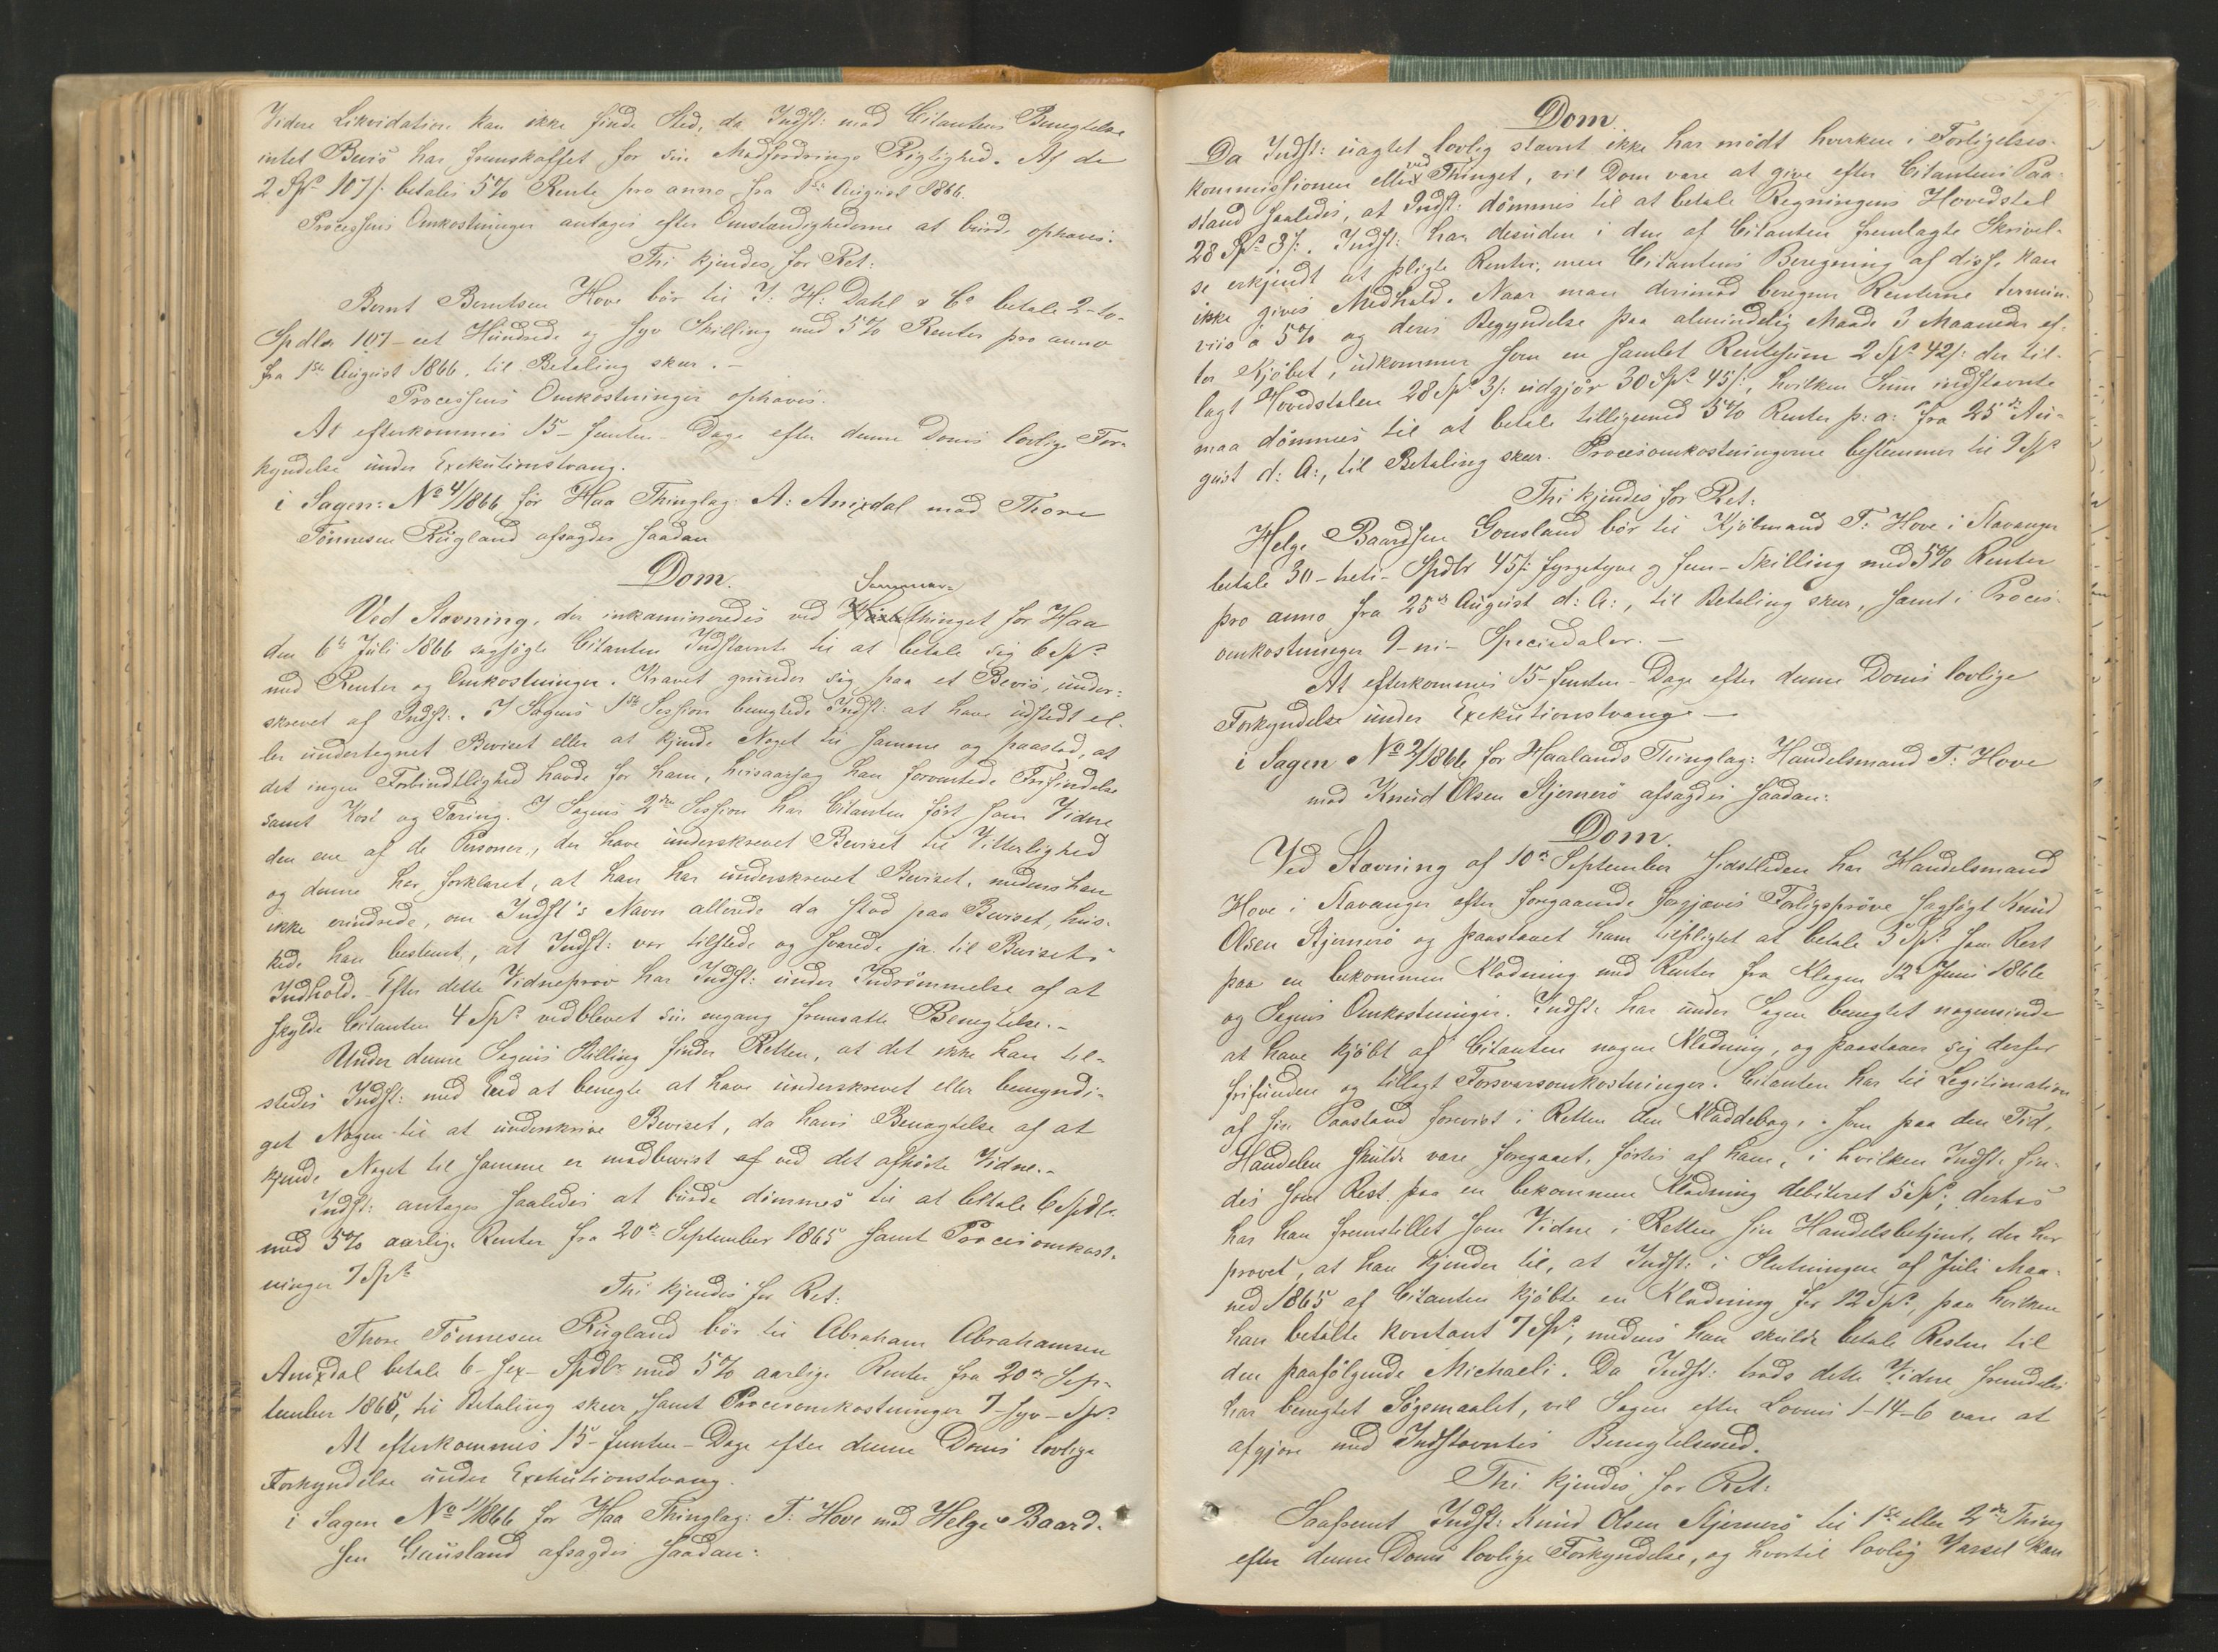 Videre Likvidation kan ikke finde Sted, da Indst: mod Citantens Benegtelse
intet Bevis har fremskaffet for sin Modfordrings Rigtighed. Af de
2 Spd 107 /: betales 5% Rente pro anno fra 1ste August 1866.
Processens Omkostninger antages efter Omstændighederne at burde ophæves.
Thi kjendes for Ret:
Bernt Berntsen Hove bör til T: H: Dahl & Co betale 2-to-
Spdlr 107- eet Hundrede og syv Skilling med 5% Renter pro anno
fra 1ste August 1866, til Betaling skeer. -
Processens Omkostninger ophæves.
At efterkommes 15- femten- Dage efter denne Doms lovlige For-
kyndelse under Exekutionstvang.
i Sagen: No 4/1866 for Haa Thinglag: A: Anixdal mod Thore
Tönnesen Rügland afsagdes saadan
Dom.
Sommer-
Ved Stævning, der inkamineredes ved Höstthinget for Haa
den 6te Juli 1866 sagsögte Citanten Indstævnte til at betale sig 6 Spd
med Renter og Omkostninger. Kravet grunder sig paa et Bevis, under-
skrevet af Indst:. I Sagens 1ste Session benegtede Indst: at have udstedt el-
ler undertegnet Beviset eller at kjende Noget til samme og paastod, at
det ingen Forbindtlighed havde for ham, hvisaarsag han forventede Frifindelse
samt Kost og Tæring. I Sagens 2den Session har Citanten fört som Vidne
den ene af de Personer, der have underskrevet Beviset til Vitterlighed
og denne har forklaret, at han har underskrevet Beviset, medens han
ikke erindrede, om Indst's Navn allerede da stod paa Beviset, hus-
kede han bestemt, at Indst: var tilstede og svarede ja til Bevisets
Indhold. Efter dette Vidneprov har Indst: under Indrömmelse af at
skylde Citanten 4 Spd vedblevet sin engang fremsatte Benegtelse. -
Under denne Sagens Stilling finder Retten, at det ikke kan til-
stedes Indst: med Eed at benegte at have underskrevet eller bemyndi-
get Nogen til at underskrive Beviset, da hans Benægtelse af at
kjende Noget til samme er modbevist af ved det afhörte Vidne. -
Indst: antages saaledes at burde dömmes til at betale 6 Spdlr.
med 5% aarlige Renter fra 20de September 1865 samt Procesomkost-
ninger 7 Spd
Thi kjendes for Ret:
Thore Tönnesen Rügland bör til Abraham Abrahamsen
Anixdal betale 6- sex- Spdlr med 5% aarlige Renter fra 20de Sep-
tember 1865, til Betaling skeer samt Procesomkostninger 7- syv- Spd.
At efterkommes 15- femten- Dage efter denne Doms lovlige
Forkyndelse under Exekutionstvang.
i Sagen No 11/1866 for Haa Thinglag: T: Hove mod Helge Baard-
sen Gausland afsagdes saadan:
Dom.
Da Indst: uagtet lovlig stævnt ikke har mödt hverken i Forligelses-
kommissionen eller ved Thinget, vil Dom være at give efter Citantens Paa-
stand saaledes, at Indst: dömmes til at betale Regningens Hovedstol
28 Spd 3 /:. Indst: har desuden i den af Citanten fremlagte Skrivel-
se erkjendt at pligte Renter, men Citantens Beregning af disse kan
ikke gives Medhold. Naar man derimod beregner Renterne termin-
viis a 5% og deres Begyndelse paa almindelig Maade 3 Maaneder ef-
ter Kjöbet, udkommer som en samlet Rentesum 2 Spd 42 /: der til-
lagt Hovedstolen 28 Spd 3 /: udgjör 30 Spd 45 /:, hvilken Sum indstævnte
maa dömmes til at betale tilligemed 5% Renter p: a: fra 25de Au-
gust d: A:, til Betaling skeer. Procesomkostningerne bestemmes til 9 Spd
Thi kjendes for Ret:
Helge Baardsen Gousland bör til Kjöbmand T: Hove i Stavanger
betale 30- treti- Spdlr 45 /: fyrgetyve og fem- Skilling med 5% Renter
pro anno fra 25de August d: A:, til Betaling skeer, samt i Proces-
omkostninger 9- ni- Speciedaler. -
At efterkommes 15- femten- Dage efter denne Doms lovlige
Forkyndelse under Exekutionstvang -
i Sagen No 2/1866 for Haalands Thinglag: Handelsmand T: Hove
mod Knud Olsen Stjernerö afsagdes saadan:
Dom.
Ved Stævning af 10de September sidstleden har Handelsmand
Hove i Stavanger efter foregaaende forgjæves Forligspröve sagsögt Knud
Olsen Stjernerö og paastaaet ham tilpligtet at betale 5 Spd som Rest
paa en bekommen Klædning med Renter fra Klagen 12te Juni 1866
og Sagens Omkostninger. Indst: har under Sagen benegtet nogensinde
at have kjöbt af Citanten nogen Klædning, og paastaaer sig derfor
frifunden og tillagt Forsvarsomkostninger. Citanten har til Legitimation
af sin Paastand forevist i Retten den Kladdebog, som paa den Tid,
Handelen skulde være foregaaet, förtes af ham, i hvilken Indst: fin-
des som Rest paa en bekommen Klædning debiteret 5 Spd, derhos
har han fremstillet som Vidne i Retten sin Handelsbetjent, der har
provet, at han kjender til, at Indst: i Slutningen af Juli Maa-
ned 1865 af Citanten kjöbte en Klædning for 12 Spd, paa hvilken
han betalte kontant 7 Spd, medens han skulde betale Resten til
den paafölgende Michaeli. Da Indst: trods dette Vidne fremdeles
har benegtet Sögsmaalet, vil Sagen efter Lovens 1-14-6 være at
afgjöre med Indstævntes Benegtelseseed.
Thi kjendes for Ret:
Saafremt Indst: Knud Olsen Stjernerö til 1ste eller 2det Thing
efter denne Doms lovlige Forkyndelse, og hvortil lovlig Varsel kan